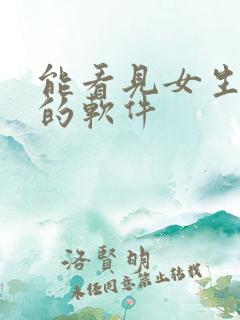 能看見女生
的軟件
洛賢明
未经同意禁止转载